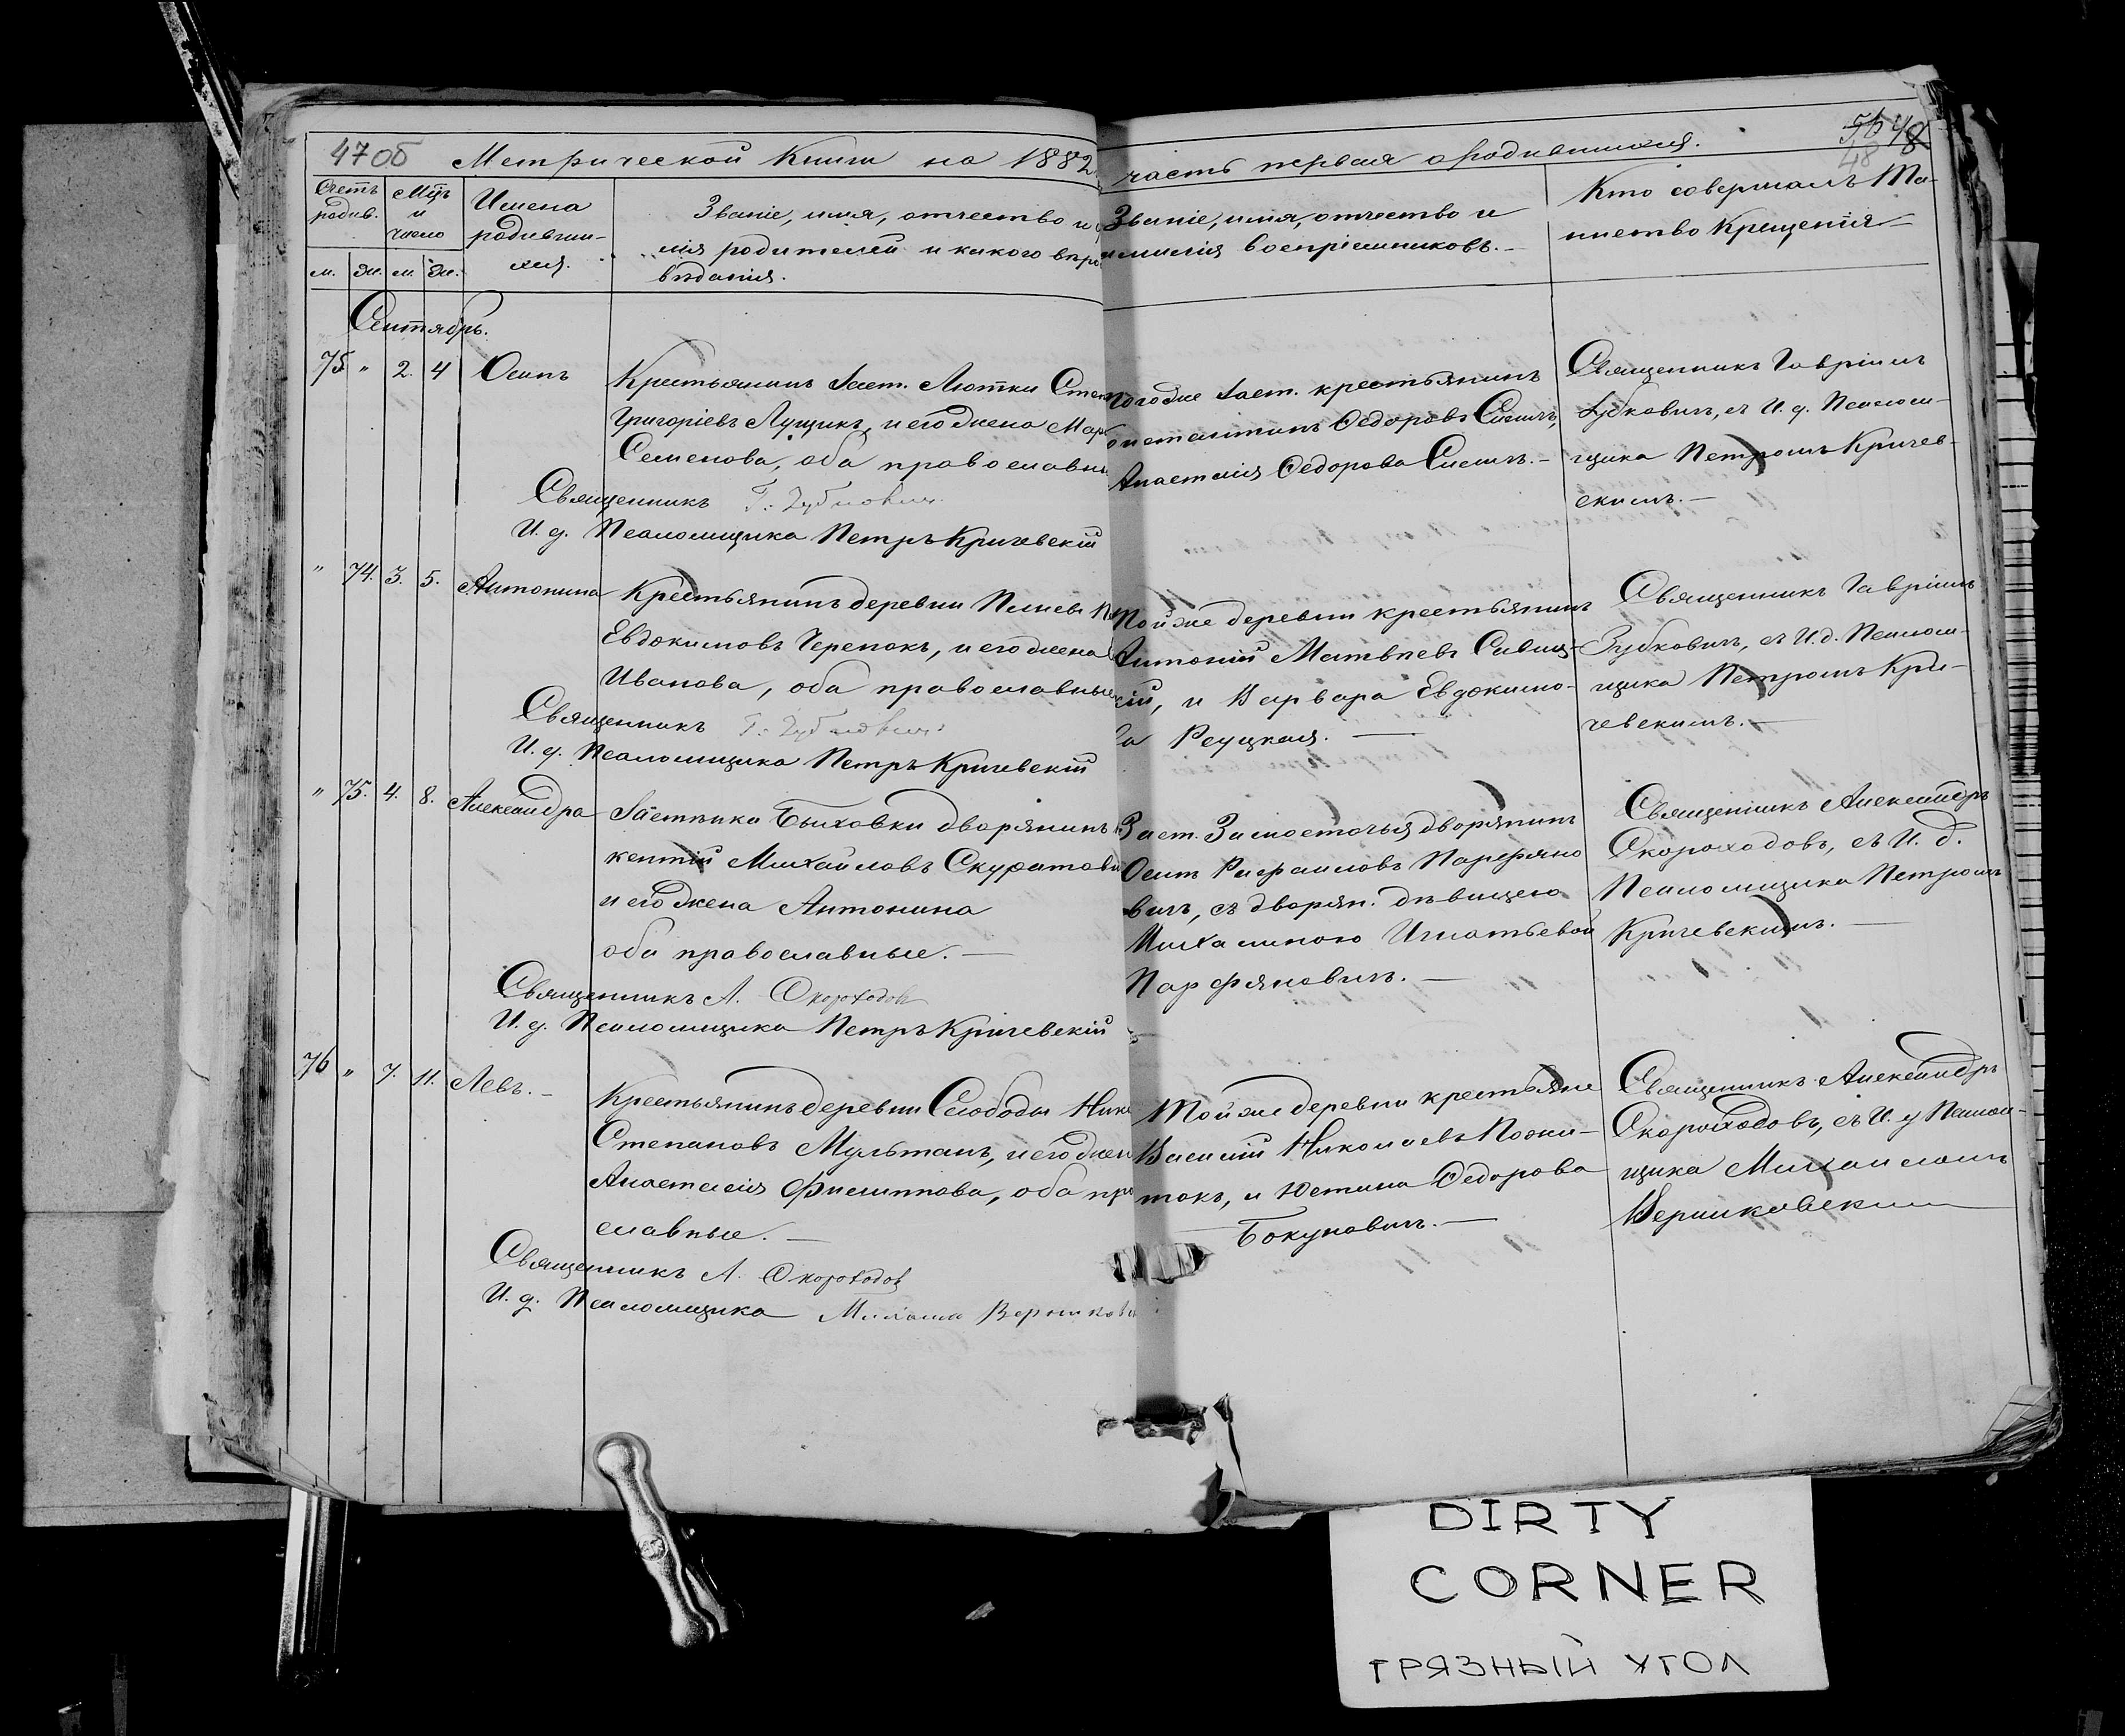 47 об Метрической Книги на 1882
часть первая о родившихся.
48
Счетъ родив.
Мцъ и число
Имена родивши-хся.
Званіе, имя, отчество и
лія родителей и какого вѣро
вѣданія.
Званіе, имя, отчество и
милія воспріемниковъ. —
Кто совершалъ Та-
инство Крещенія —
м. ж. м. ж.
Сентябрь.
75 " 2. 4 Осипъ
Крестьянинъ Заст. Лютки Степ
Григоріевъ Лущикъ, и его жена Мар
Семенова, оба православны
Священникъ Г. Зубковичъ
И. д. Псаломщика Петръ Кричевскій
Тогоже Заст. крестьянинъ
онстантинъ Ѳедоровъ
Анастасія Ѳедорова
Священникъ Гавріилъ
Зубковичъ, съ И. д. Псалом-
щика Петромъ Кричев-
скимъ. —
" 74. 3. 5. Антонина
Крестьянинъ деревни
Евдокимовъ Черепокъ, и его жена
Иванова, оба православные
Священникъ Г. Зубковичъ
И. д. Псаломщика Петръ Кричевскій
Той же деревни крестьянинъ
Антоній Матвѣевъ Савиц-
кій, и Варвара Евдокимо-
ва Реуцкая. —
Священникъ Гавріилъ
Зубковичъ, съ И. д. Псалом-
щика Петромъ Кри-
чевскимъ. —
" 75. 4. 8. Александра
Застѣнка Быховки дворянинъ
кентій Михайловъ Скуратови
и его жена Антонина
оба православные. —
Священникъ А. Скороходов
И. д. Псаломщика Петръ Кричевскій
Заст. Замосточья дворянинъ
Осипъ Рафаиловъ Парфяно
вичъ, съ дворян. дѣвицею
Михалиною Игнатьевой
Парфяновичъ. —
Священникъ Александръ
Скороходовъ, съ И. д.
Псаломщика Петромъ
Кричевскимъ. —
76 " 7. 11. Левъ. —
Крестьянинъ деревни Слободы Ник
Степановъ Мультанъ, и его жен
Анастасія Филиппова, оба пр
славные. —
Священникъ А. Скороходов
И. д. Псаломщика Михаил Верников
Той же деревни крестьяне
Василій Николаевъ Пожи-
токъ, и Юстина Ѳедорова
Бокуновичъ. —
Священникъ Александръ
Скороходовъ, съ И. д Псалом-
щика Михаиломъ
Верниковским
DIRTY
CORNER
ГРЯЗНЫЙ УГОЛ